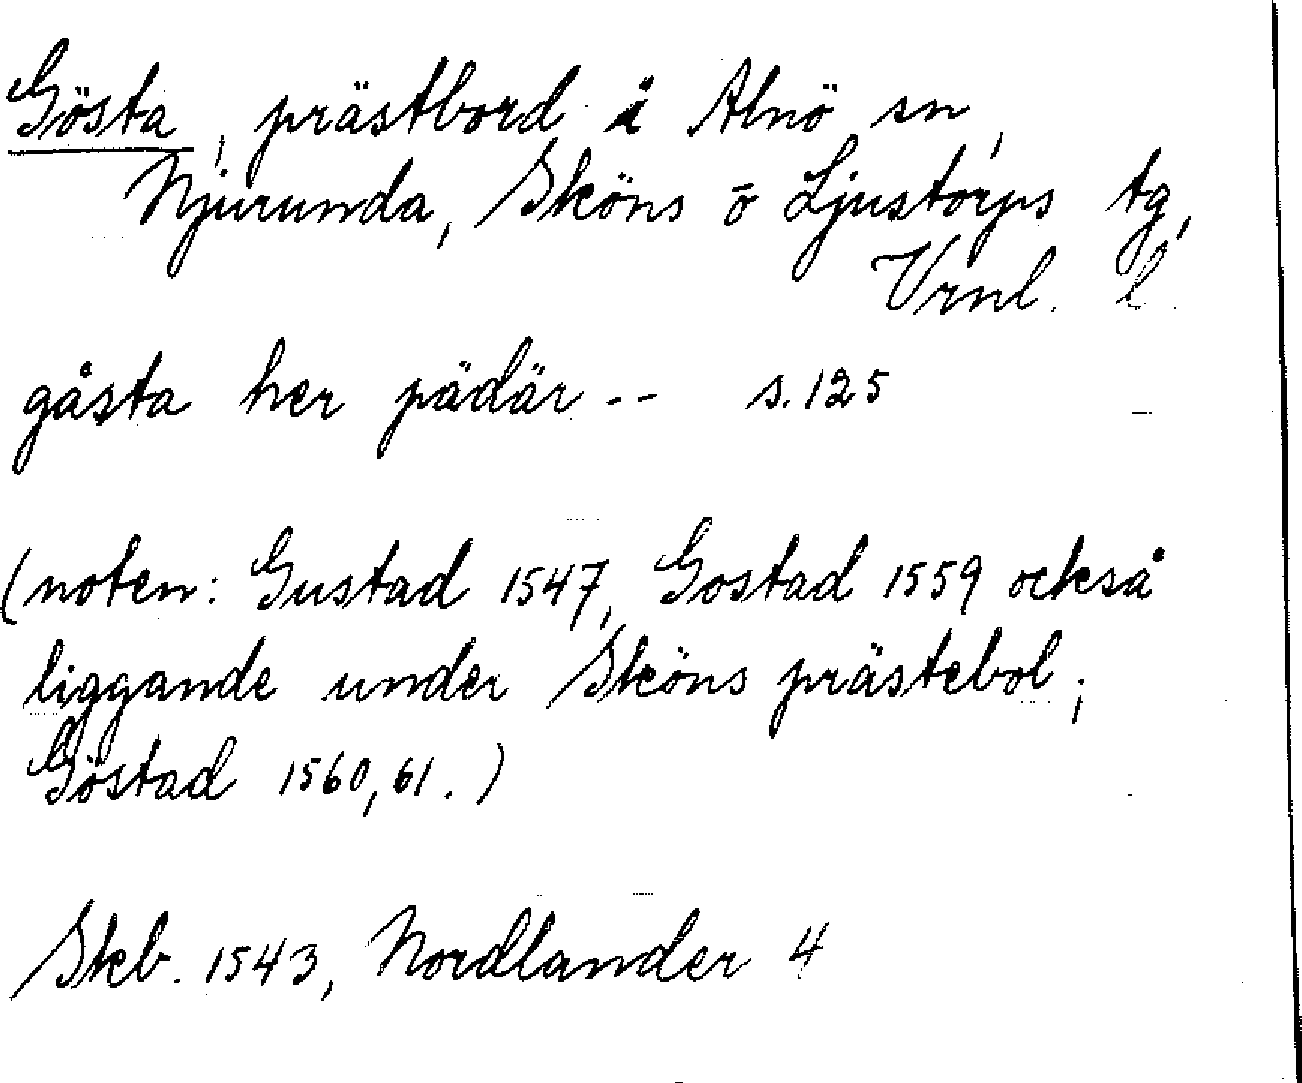 Gösta, prästbord i Alnö sn,
Njurunda, Sköns o Ljustorps tg,
Vrnl. l.
gåsta her pädär -- s. 125
(noten: Gustad 1547, Gostad 1559 också
liggande under Sköns prästebol;
Göstad 1560, 61.)
Skb. 1543, Nordlander 4